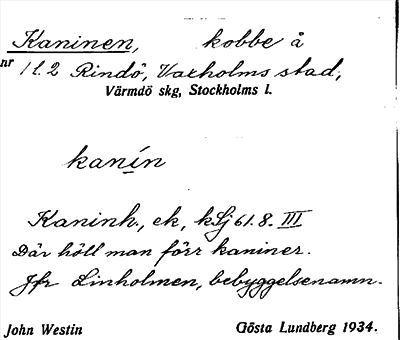 Kaninen, kobbe å
nr 1 l. 2 Rindö, Vaxholms stad,
Värmdö skg, Stockholms l.
kanin
Kaninh., ek, kSj 61.8. III
Där höll man förr kaniner.
Jfr Linholmen, bebyggelsenamn.
John Westin Gösta Lundberg 1934.